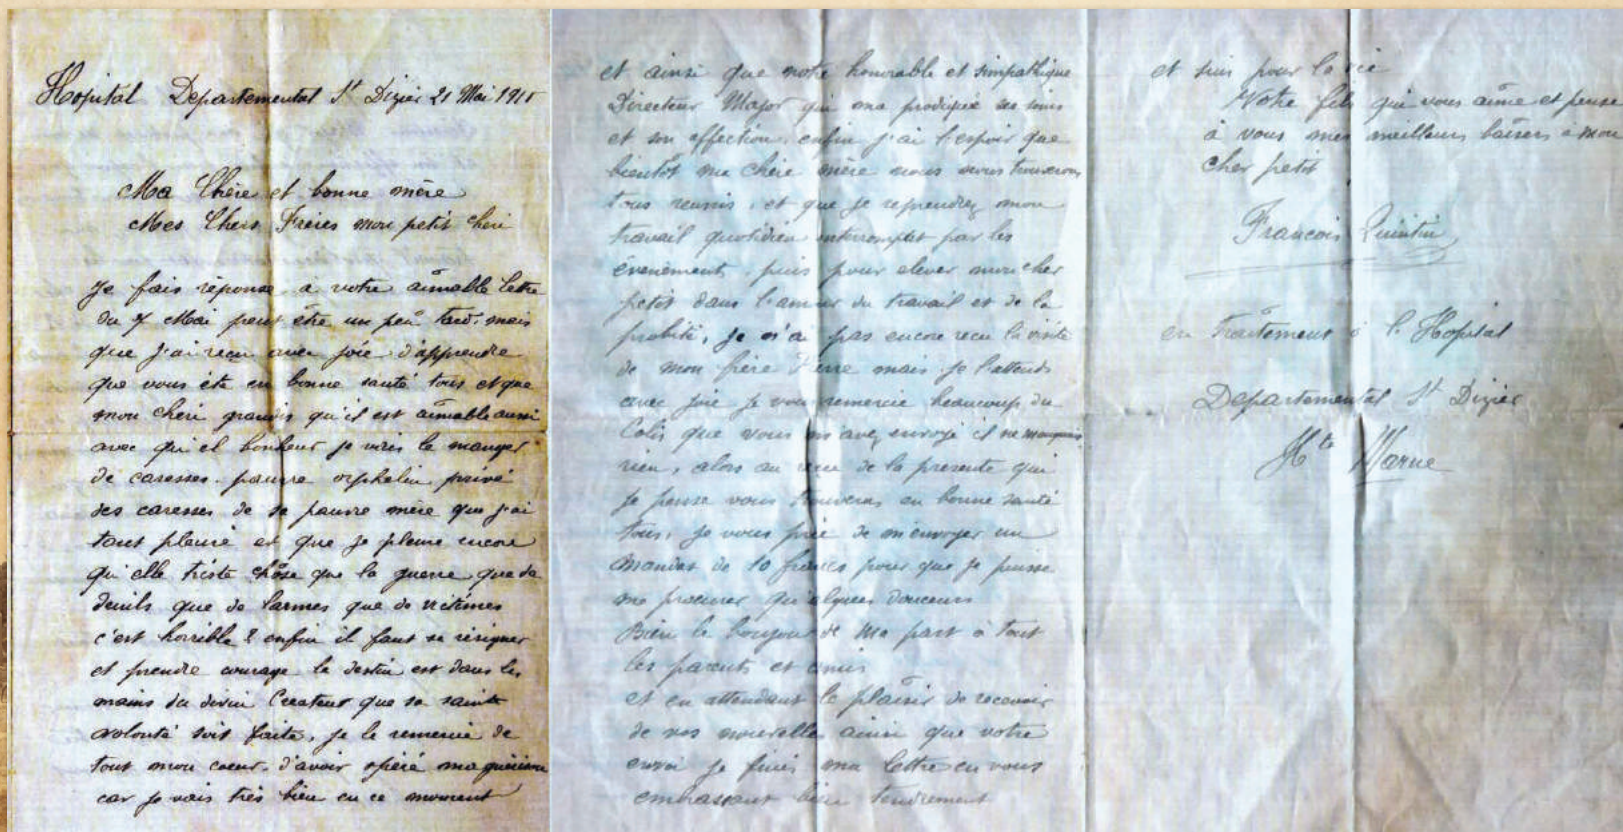 Hopital Departemental St Dizier 21 Mai 1915
Ma Chère et bonne mère
Mes Chers Frères mon petit cheri
Je fais réponse à votre aimable lettre
du 7 Mai peut être un peu tard, mais
que j'ai reçu avec joie d'apprendre
que vous éte en bonne santé tous et que
mon cheri grandis qu'il est aimable aussi
avec qu'el bonheur je vais le manger
de caresses. pauvre orphelin privé
des caresses de sa pauvre mère que j'ai
tant pleuré et que je pleure encore
qu'elle triste chose que la guerre que de
deuils que de larmes que de victimes
c'est horrible ? enfin il faut se résigner
et prendre courage le destin est dans les
mains du divin Createur que sa sainte
volonté soit faite, je le remercie de
tout mon coeur. d'avoir opéré ma guérison
car je vais très bien en ce moment
et ainsi que notre honorable et simpathique
Directeur Major qui ma prodiguée ses soins
et son affection. enfin j'ai l'espoir que
bientôt ma chère mère nous nous trouverons
tous reunis, et que je reprendrez mon
travail quotidien interrompt par les
évenement, puis pour elever mon cher
petit dans l'amour du travail et de la
probité, je n'ai pas encore recu la visite
de mon frère Pierre mais je l'attends
avec joie je vous remercie beaucoup du
Colis que vous m'avez envoyé il ne manquais
rien, alors au recu de la presente qui
je pense vous trouveras en bonne santé
tous, je vous prie de m'envoyer un
Mandat de 10 francs pour que je puisse
me procurer qu'elques douceurs
Bien le bonjour de ma part à tout
les parents et amis
et en attendant le plaisir de recevoir
de vos nouvelle ainsi que votre
envoi je finis ma lettre en vous
embrassant bien tendrement
et suis pour la vie
Votre fils qui vous aime et pense
à vous mes meilleurs baisers à mon
cher petit
Francois Quintin
en traitement à l'Hopital
Departemental St Dizier
Hte Marne